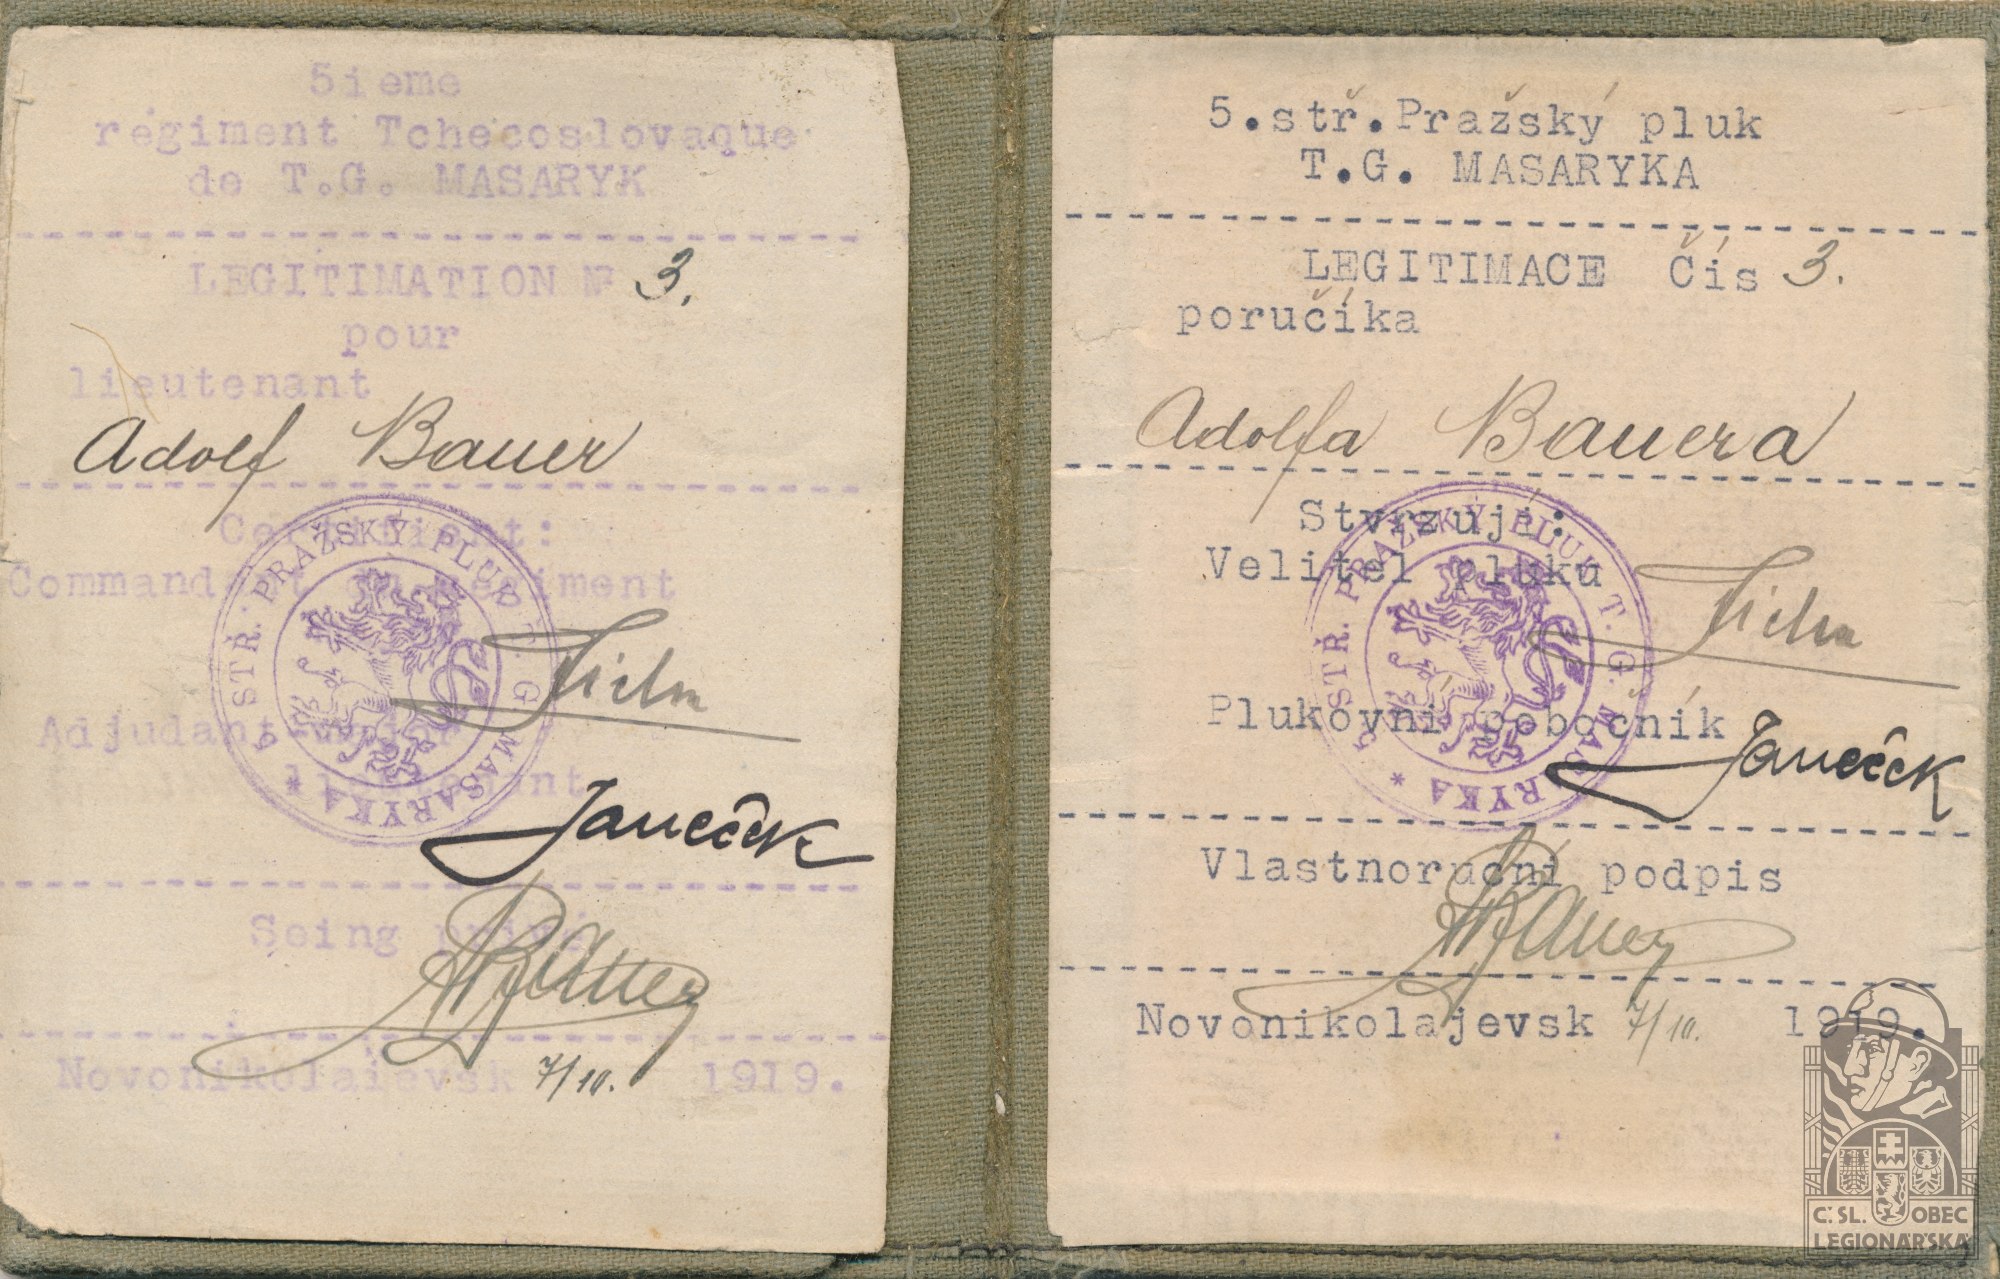 5ieme
régiment Tchecoslovaque
de T.G. MASARYK
LEGITIMATION № 3.
pour
lieutenant
Adolf Bauer
Certifient:
Commandant du régiment
Adjudant-major
lieutenant
Janeček
Seing privé
Bauer
Novonikolajevsk 7/10. 1919.
5 STŘ. PRAŽSKÝ PLUK T. G. MASARYKA *
5.stř.Pražský pluk
T.G. MASARYKA
LEGITIMACE Čís 3.
poručíka
Adolfa Bauera
Stvrzují:
Velitel pluku
Plukovní pobočník
Janeček
Vlastnoruční podpis
Bauer
Novonikolajevsk 7/10. 1919.
5 STŘ. PRAŽSKÝ PLUK T. G. MASARYKA *
Č.SL. OBEC
LEGIONÁŘSKÁ